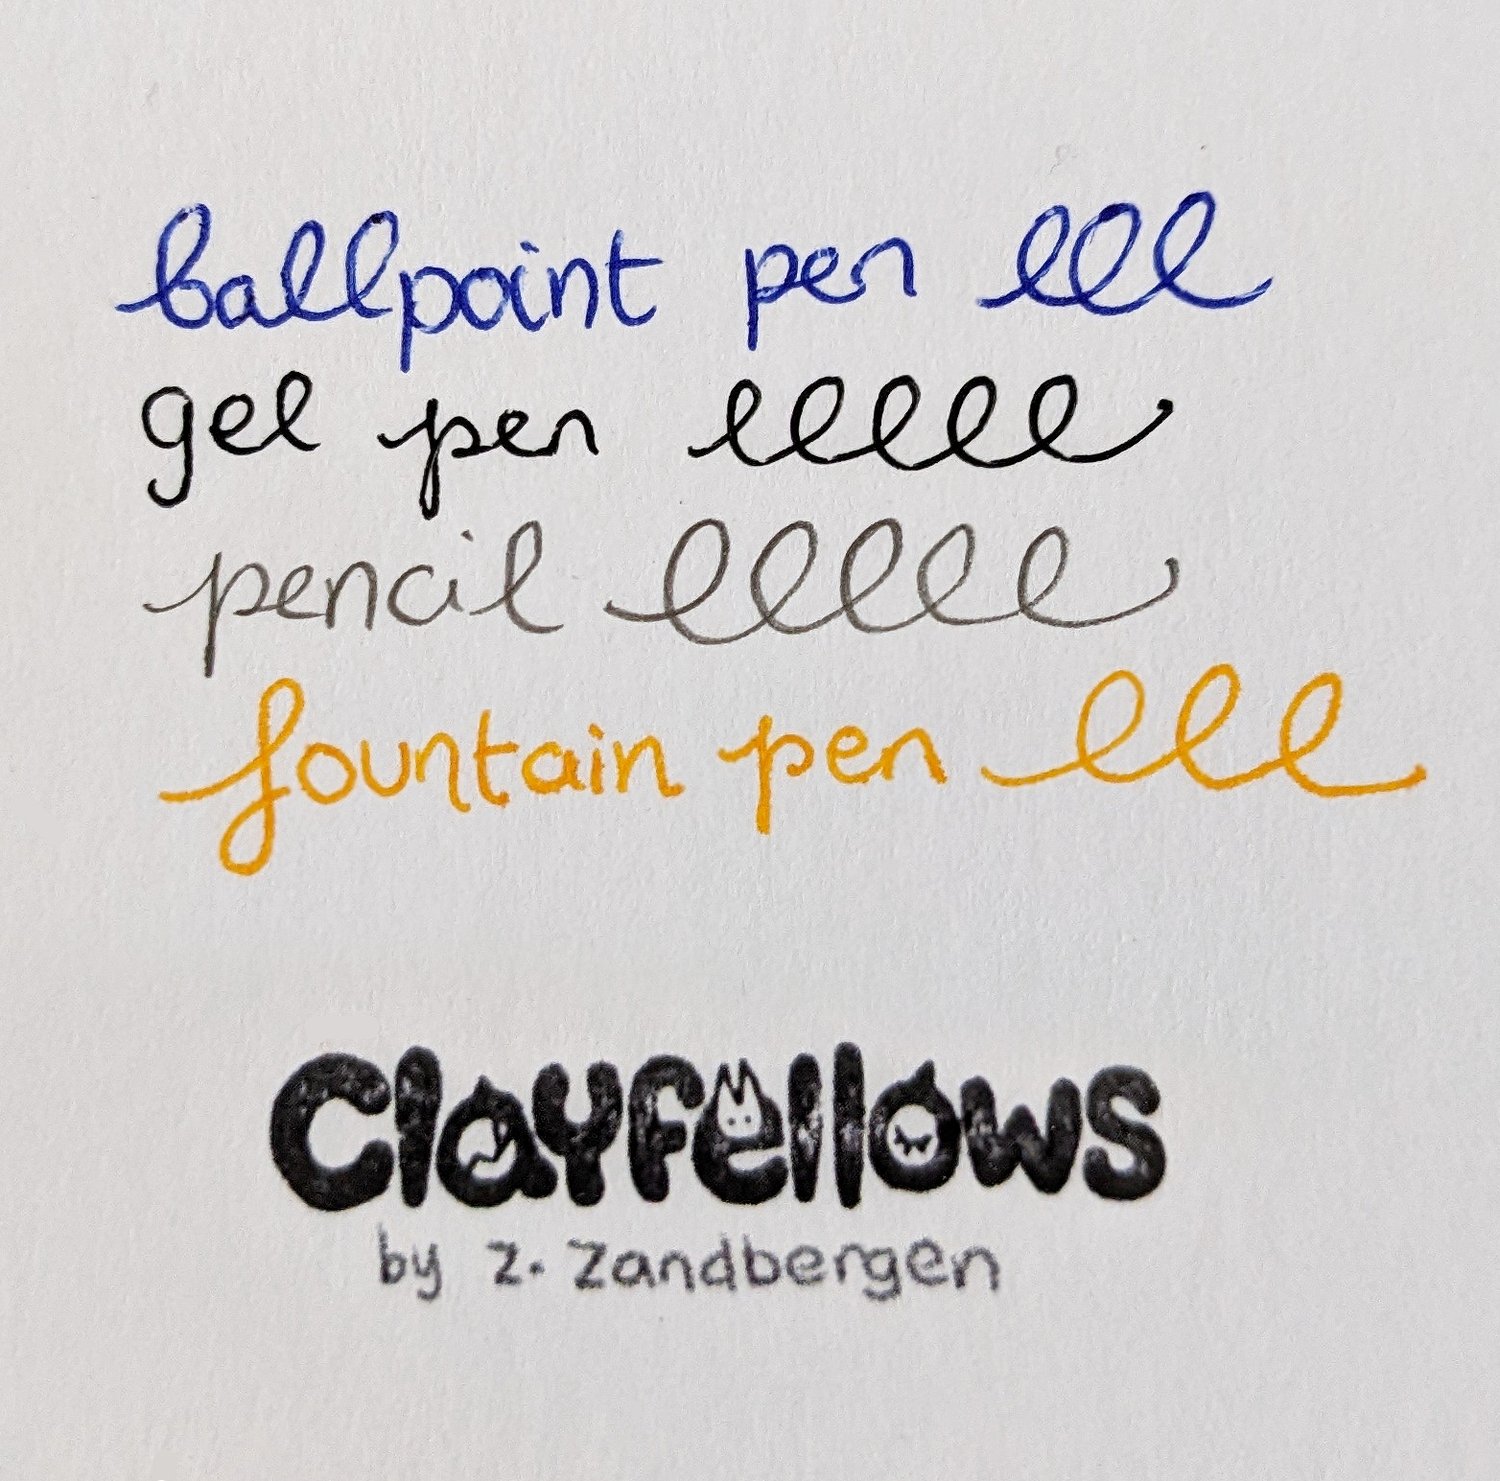 ballpoint pen lll
gel pen lllll
pencil lllll
fountain pen lll
Clayfellows
by z. zandbergen